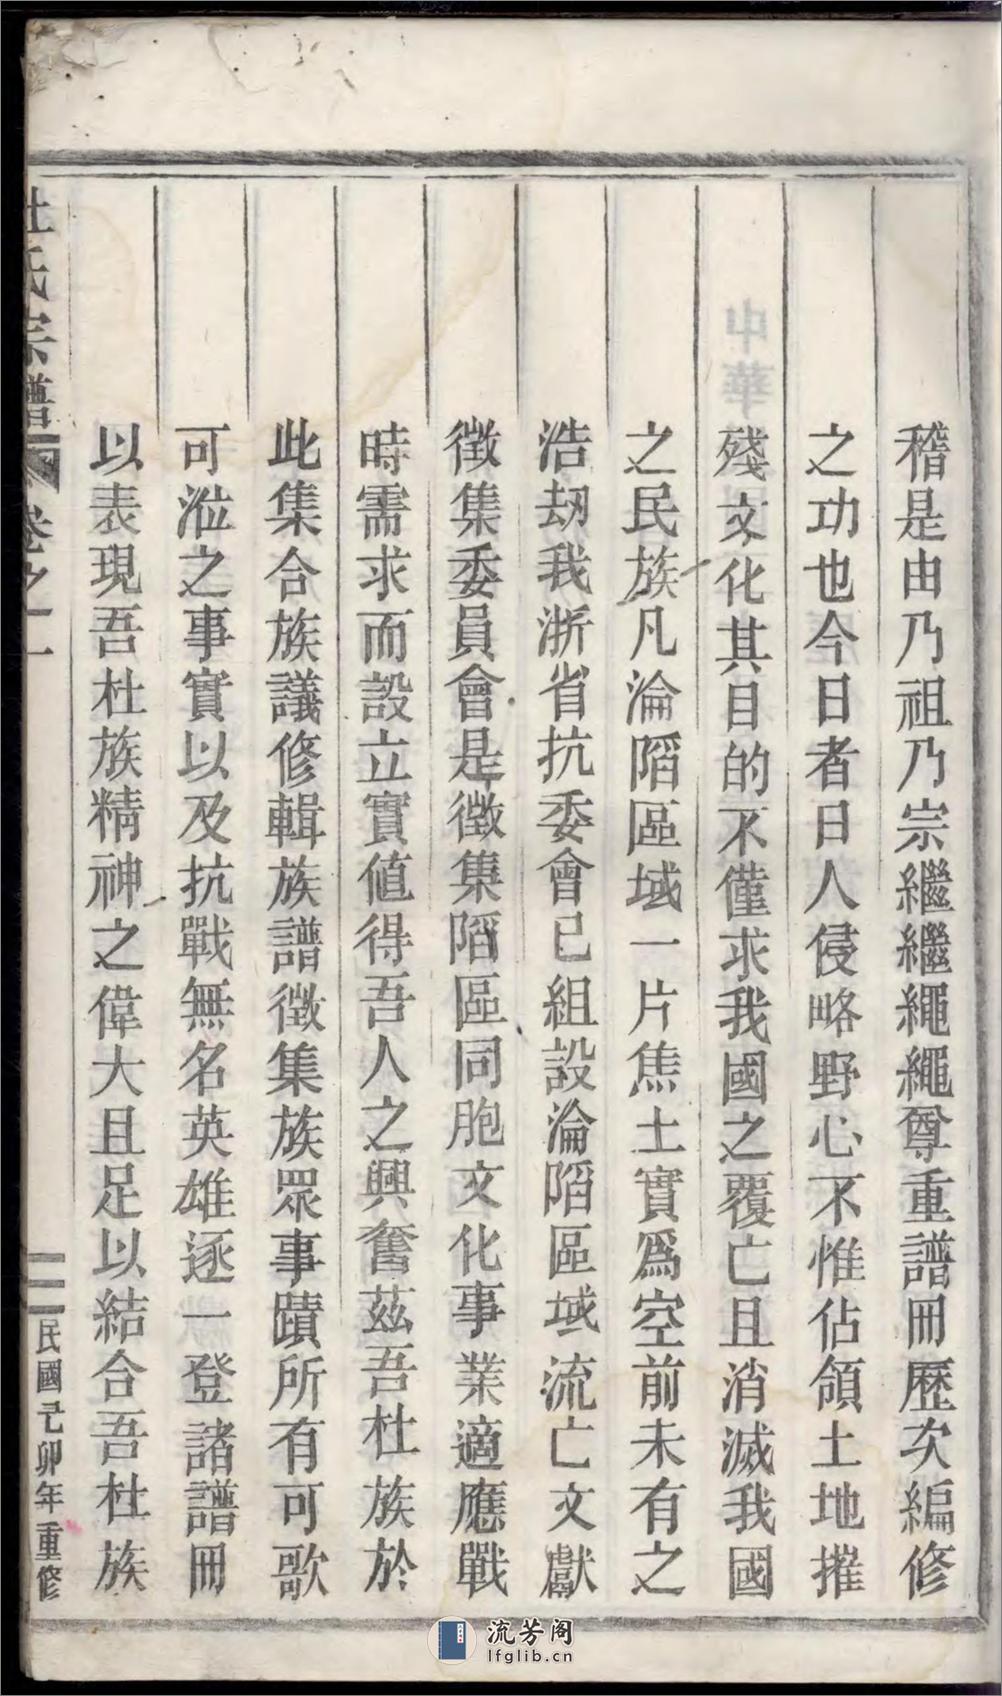 稽是由乃祖乃宗繼繼繩繩尊重譜冊歷次編修
之功也今日者日人侵略野心不惟佔領土地摧
殘文化其目的不僅求我國之覆亡且消滅我國
之民族凡淪陷區域一片焦土實爲空前未有之
浩劫我浙省抗委會已組設淪陷區域流亡文獻
徵集委員會是徵集陷區同胞文化事業適應戰
時需求而設立實值得吾人之興奮茲吾杜族於
此集合族議修輯族譜徵集族眾事蹟所有可歌
可涖之事實以及抗戰無名英雄逐一登諸譜冊
以表現吾杜族精神之偉大且足以結合吾杜族
杜氏宗譜 卷之一 二 民國己卯年重修
流芳阁
lfglib.cn